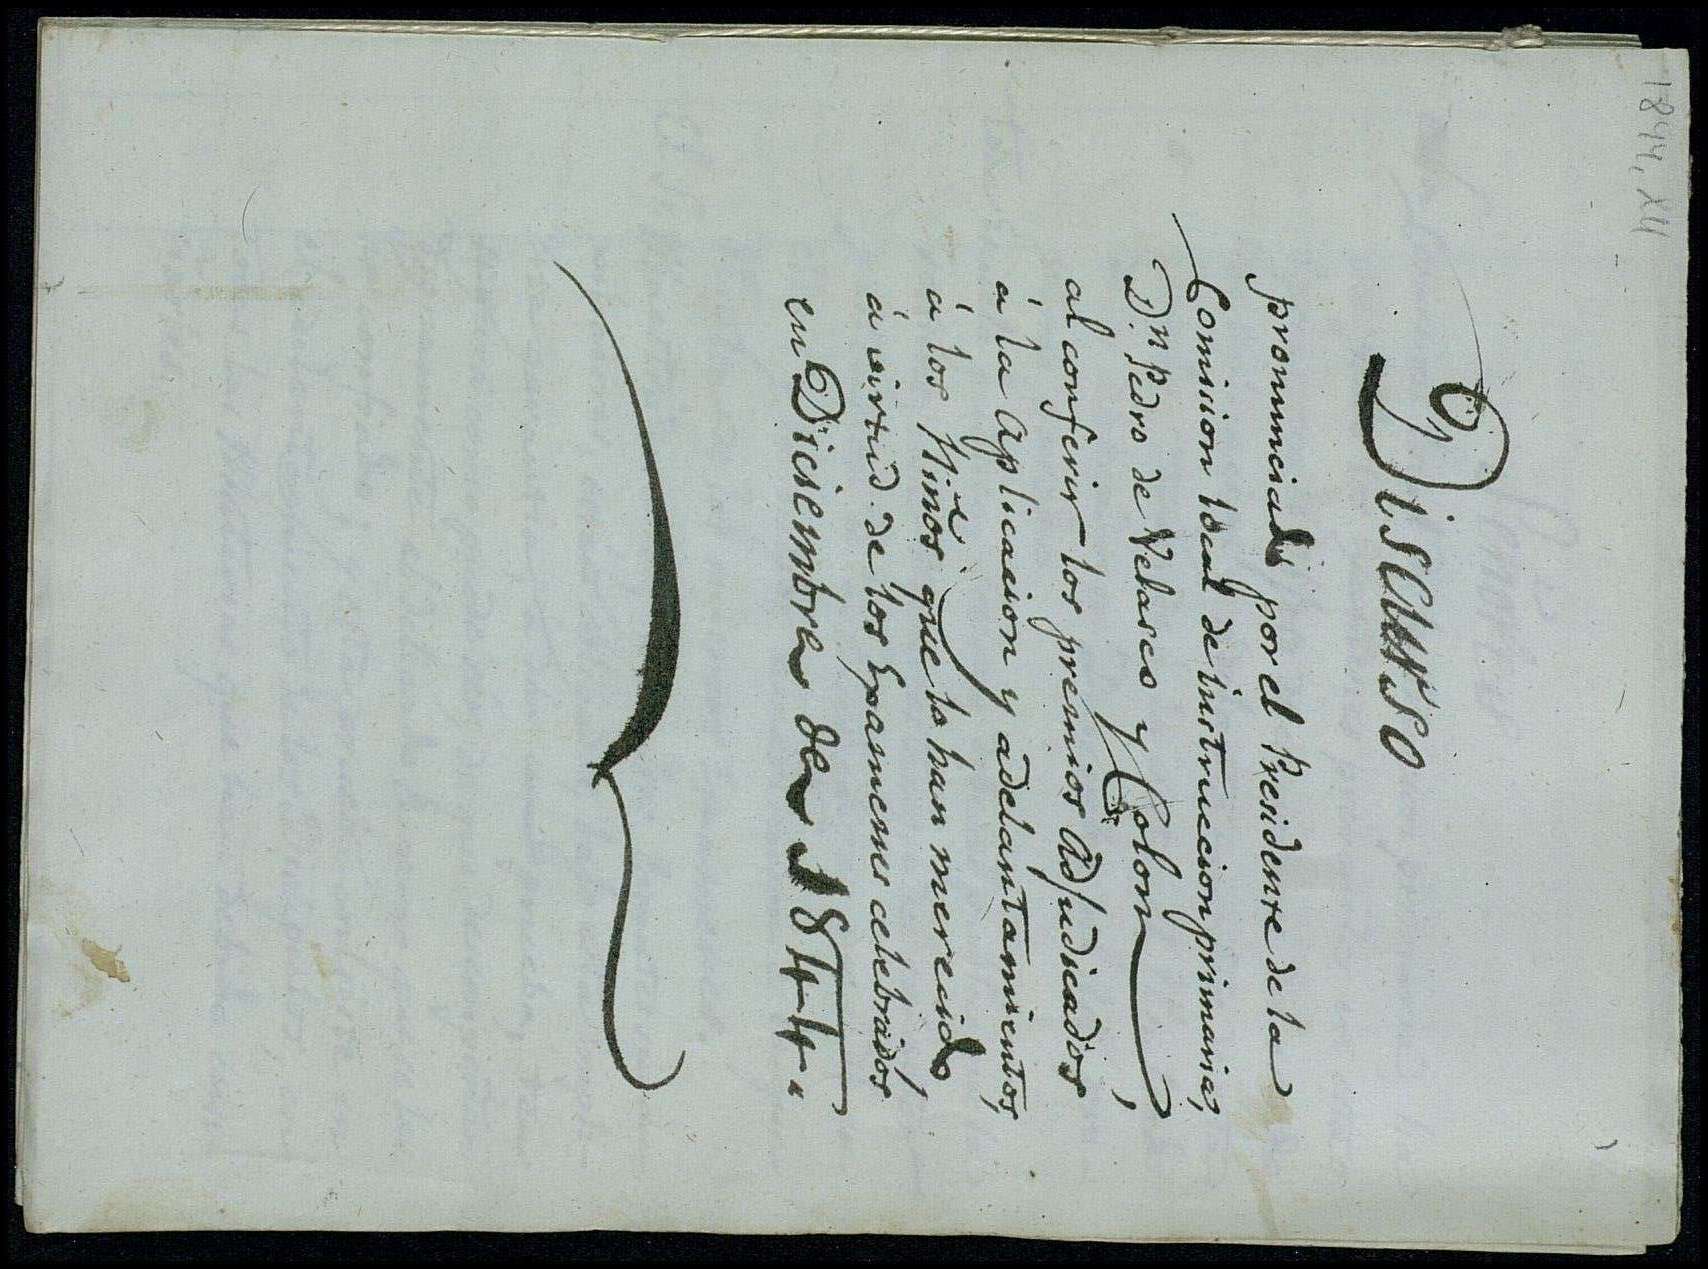 1844, XII
Discurso
pronunciado por el Presidente de la
Comision local de instruccion primaria,
Dn. Pedro de Velasco y Colon,
al conferir los premios adjudicados
á la aplicacion y adelantamientos,
á los Niños que lo han merecido,
á virtud de los Examenes celebrados
en Diciembre de 1844.